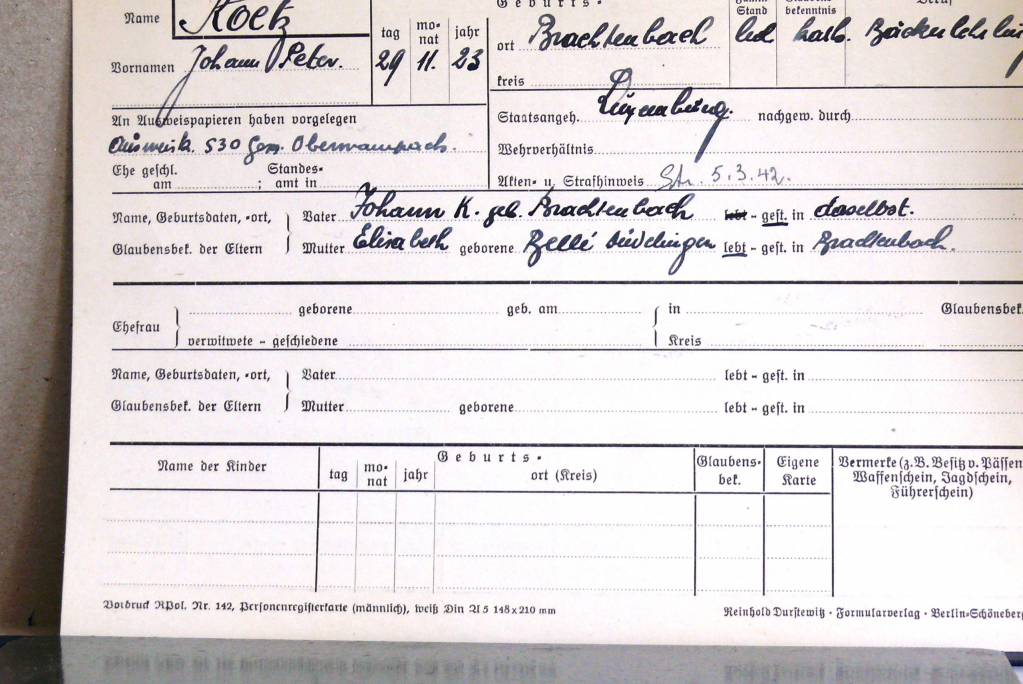 Geburts-
Name Koetz tag monat jahr ort Brachtenbach led kath. Bäckerlehrling
Stand bekenntnis
Vornamen Johann Peter. 29 11. 23
kreis
An Ausweispapieren haben vorgelegen
Staatsangeh. Luxemburg. nachgew. durch
Ausweisk. 530 Gem. Oberwampach.
Wehrverhältnis
Ehe geschl. am ; Standesamt in
Akten- u. Strafhinweis Str. 5.3.42.
Name, Geburtsdaten, -ort, Vater Johann K. geb. Brachtenbach lebt - gest. in daselbst.
Glaubensbek. der Eltern Mutter Elisabeth geborene lebt - gest. in Brachtenbach.
geborene geb. am in Glaubensbek.
Ehefrau
verwitwete - geschiedene Kreis
Name, Geburtsdaten, -ort, Vater lebt - gest. in
Glaubensbek. der Eltern Mutter geborene lebt - gest. in
Name der Kinder Geburts- Glaubensbek. Eigene Karte Vermerke (z.B. Besitz v. Pässen
tag monat jahr ort (Kreis) Waffenschein, Jagdschein,
Führerschein)
Vordruck RPol. Nr. 142, Personenregisterkarte (männlich), weiß Din A 5 148 x 210 mm
Reinhold Durstewitz · Formularverlag · Berlin-Schöneberg